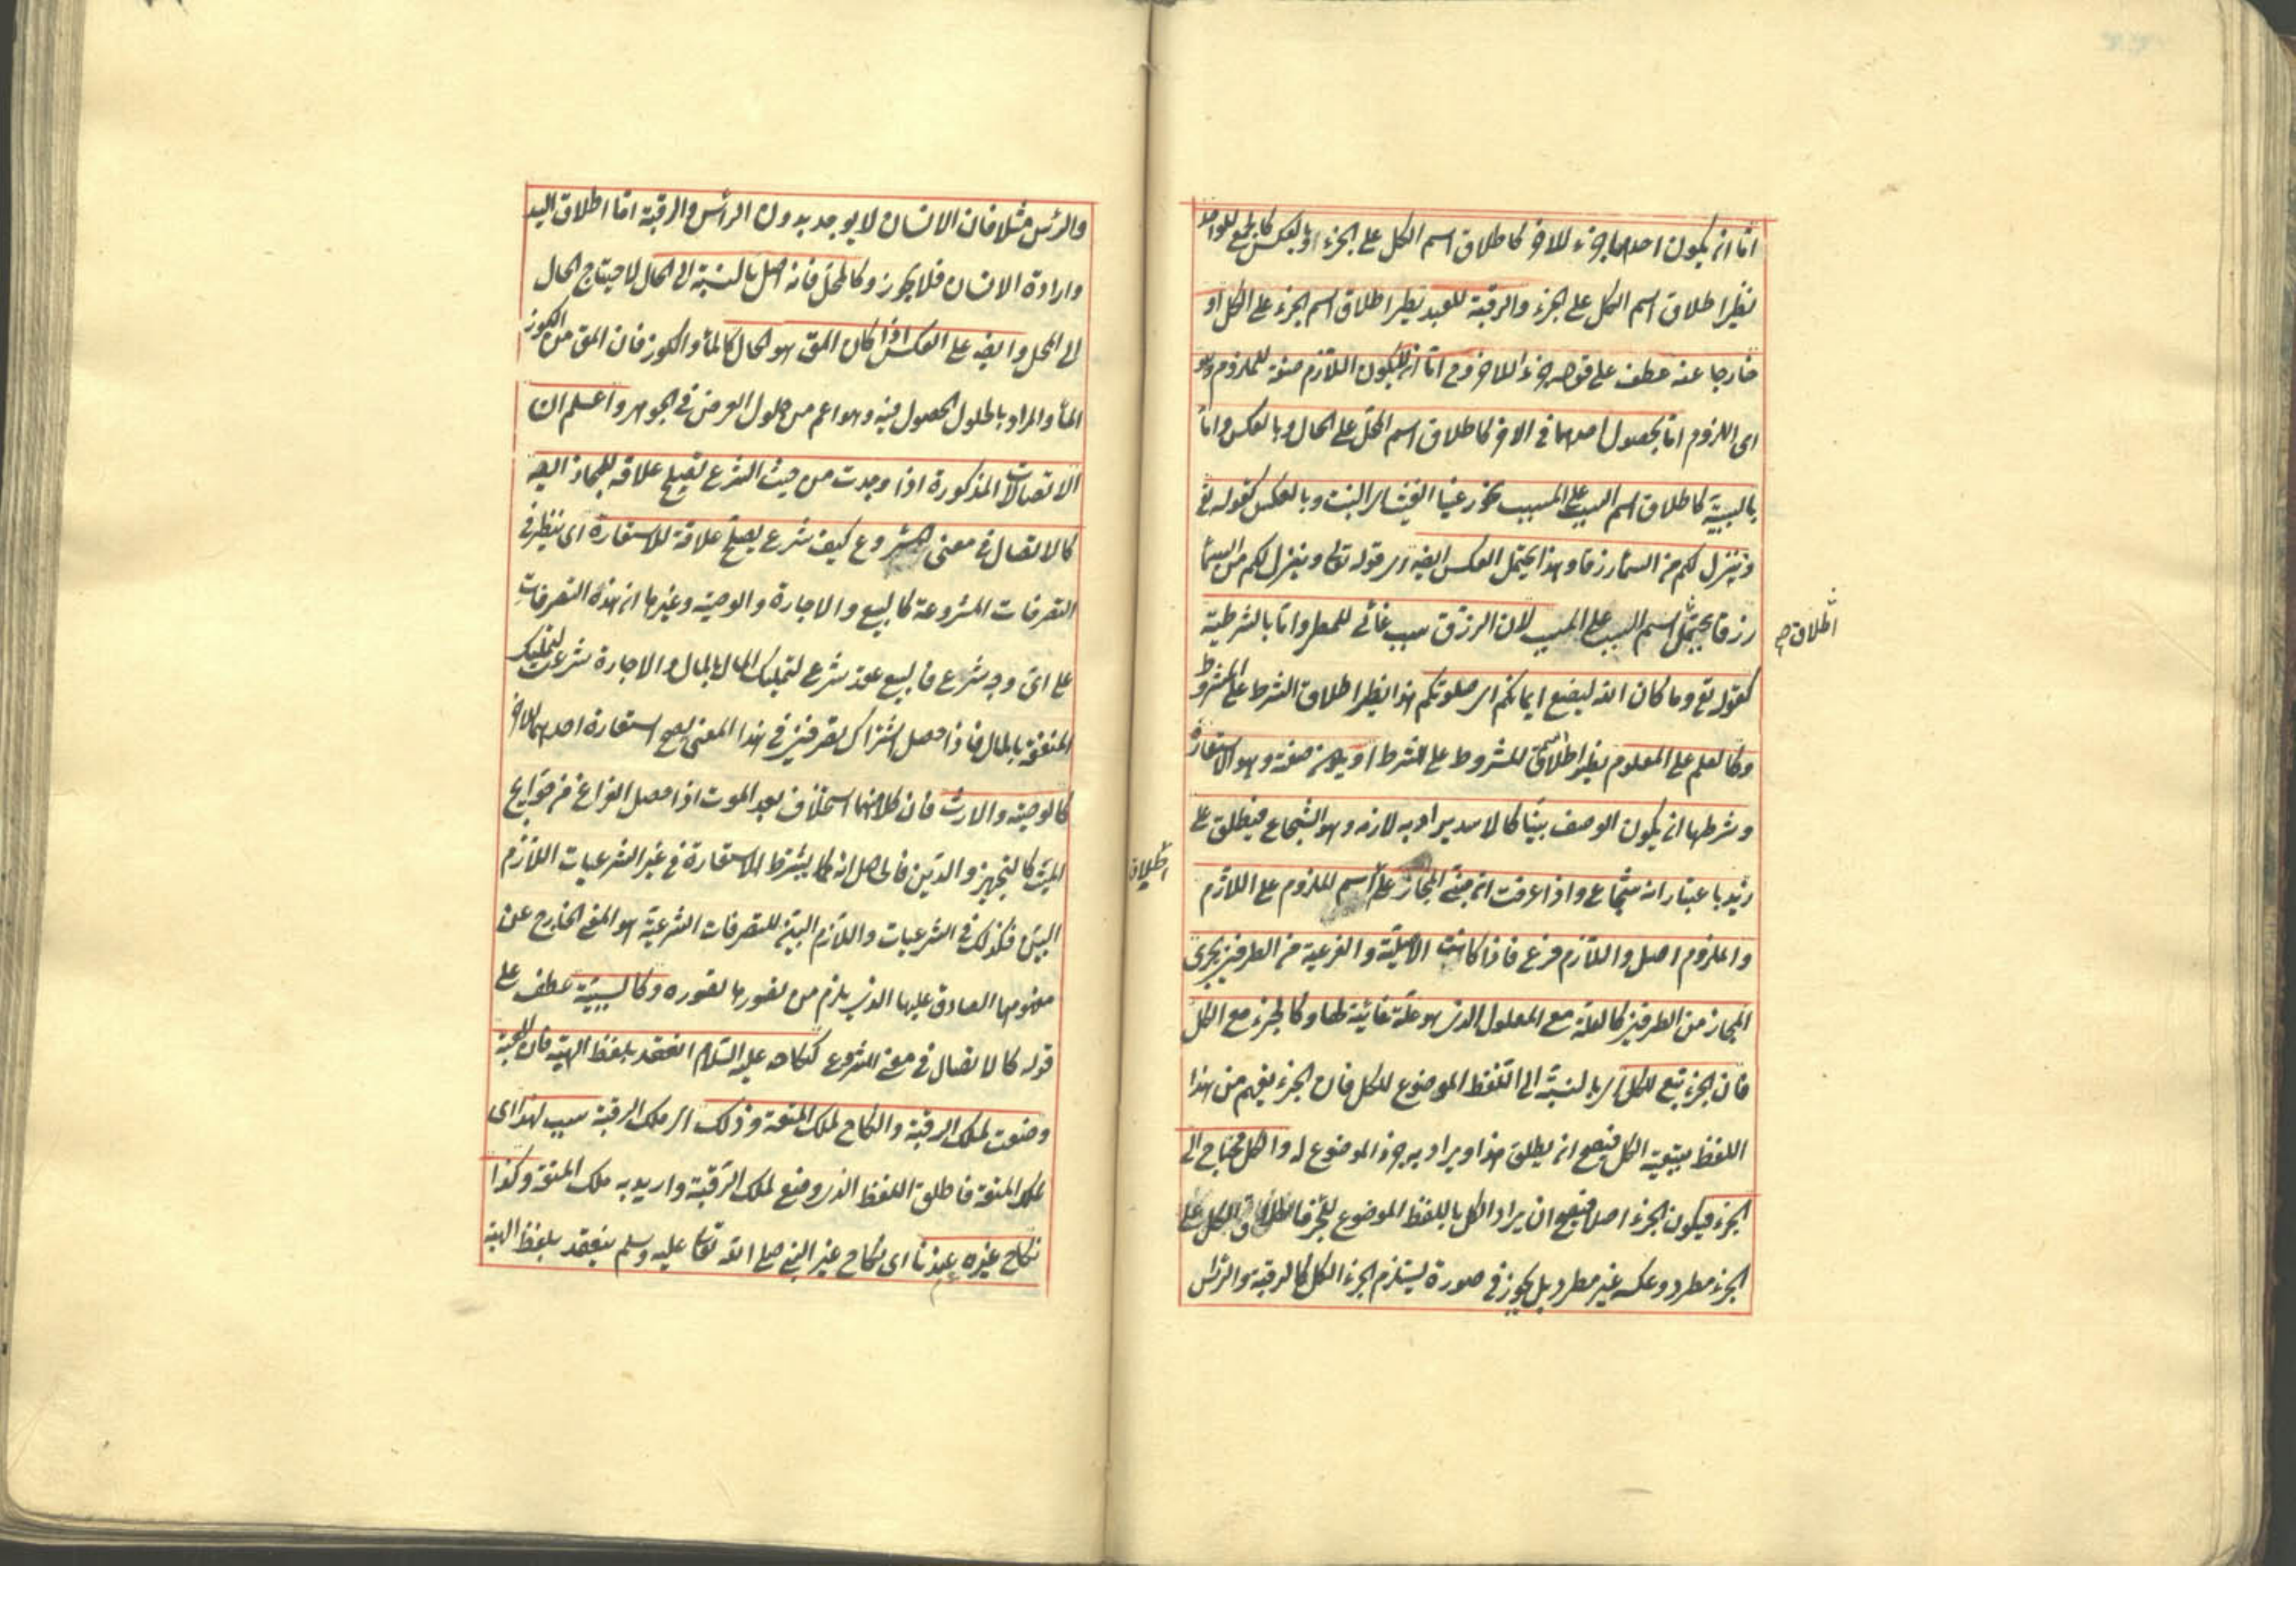 اما ان يكون احدهما جزء للاخر كاطلاق اسم الكل على الجزء او بالعكس كالجمع للواحد
نظير اطلاق اسم الكل على الجزء والرقبة للعبد نظير اطلاق اسم الجزء على الكل او
خارجا عنه عطف على قوله جزء للاخر وح اما ان يكون اللازم صفة للملزوم وهو
اى اللزوم اما بحصول احدهما فى الاخر كاطلاق اسم المحل على الحال وبالعكس واما
بالسببية كاطلاق اسم السبب على المسبب نحو رعينا الغيث اى النبت وبالعكس كقوله تع
وينزل لكم من السماء رزقا وهذا يحتمل العكس ايضا اى قوله تعا وينزل لكم من السماء
رزقا يحتمل اسم السبب على المسبب لان الرزق سبب غائى للمطر واما بالشرطية
اطلاق صح
كقوله تع وما كان الله ليضيع ايمانكم اى صلوتكم هذا نظير اطلاق الشرط على المشروط
وكالعلم على المعلوم نظير اطلاق اسم المشروط على الشرط او يكون صفة وهو الاستعارة
وشرطها ان يكون الوصف بينا كالاسد يراد به لازمه وهو الشجاع فيطلق على
زيد باعتبار انه شجاع واذا عرفت ان مبنى المجاز على اسم الملزوم على اللازم
اطلاق
والملزوم اصل واللازم فرع فاذا كانت الاصلية والفرعية من الطرفين يجرى
المجاز من الطرفين كالعلة مع المعلول الذى هو علة غائية لها وكالجزء مع الكل
فان الجزء تبع للكل اى بالنسبة الى اللفظ الموضوع للكل فان الجزء يفهم من هذا
اللفظ بتبعية الكل فيصح ان يطلق هذا ويراد به جزء الموضوع له والكل محتاج الى
الجزء فيكون الجزء اصلا فيصح ان يراد الكل باللفظ الموضوع للجزء فاطلاق الكل على
الجزء مطرد وعكسه غير مطرد بل يجوز فى صورة يستلزم الجزء الكل كالرقبة والرأس
والرئس مثلا فان الانسان لا يوجد بدون الرأس والرقبة اما اطلاق اليد
وارادة الانسان فلا يجوز وكالمحل فانه اصل بالنسبة الى الحال لاحتياج الحال
الى المحل وايضا على العكس اذا كان المق هو الحال كالماء والكوز فان المق من الكوز
الماء والمراد بالحلول الحصول فيه وهو اعم من حلول العرض فى الجوهر واعلم ان
الاتصالات المذكورة اذا وجدت من حيث الشرع تصلح علاقة للمجاز ايضا
كالاتصال فى معنى المشروع كيف شرع يصلح علاقة للاستعارة اى ينظر فى
التصرفات المشروعة كالبيع والاجارة والوصية وغيرها ان هذه التصرفات
على اى وجه شرع فالبيع عقد شرع لتمليك المال بالمال والاجارة شرعت لتمليك
المنفعة بالمال فاذا حصل اشتراك تصرفين فى هذا المعنى يصح استعارة احدهما للاخر
كالوصية والارث فان كلا منهما استخلاف بعد الموت اذا حصل الفراغ من حوايج
الميت كالتجهيز والدين فالحاصل انه كما يشترط للاستعارة فى غير الشرعيات اللازم
البين فكذلك فى الشرعيات واللازم البين للتصرفات الشرعية هو المعنى الخارج عن
مفهومها الصادق عليها الذى يلزم من تصورها تصوره وكالسببية عطف على
قوله كالاتصال فى معنى المشروع كنكاحه عليه السلام انعقد بلفظ الهبة فان الهبة
وضعت لملك الرقبة والنكاح لملك المتعة وذلك اى ملك الرقبة سبب لهذا اى
لملك المتعة فاطلق اللفظ الذى وضع لملك الرقبة واريد به ملك المتعة وكذا
نكاح غيره عندنا اى نكاح غير النبى صلى الله تعالى عليه وسلم ينعقد بلفظ الهبة